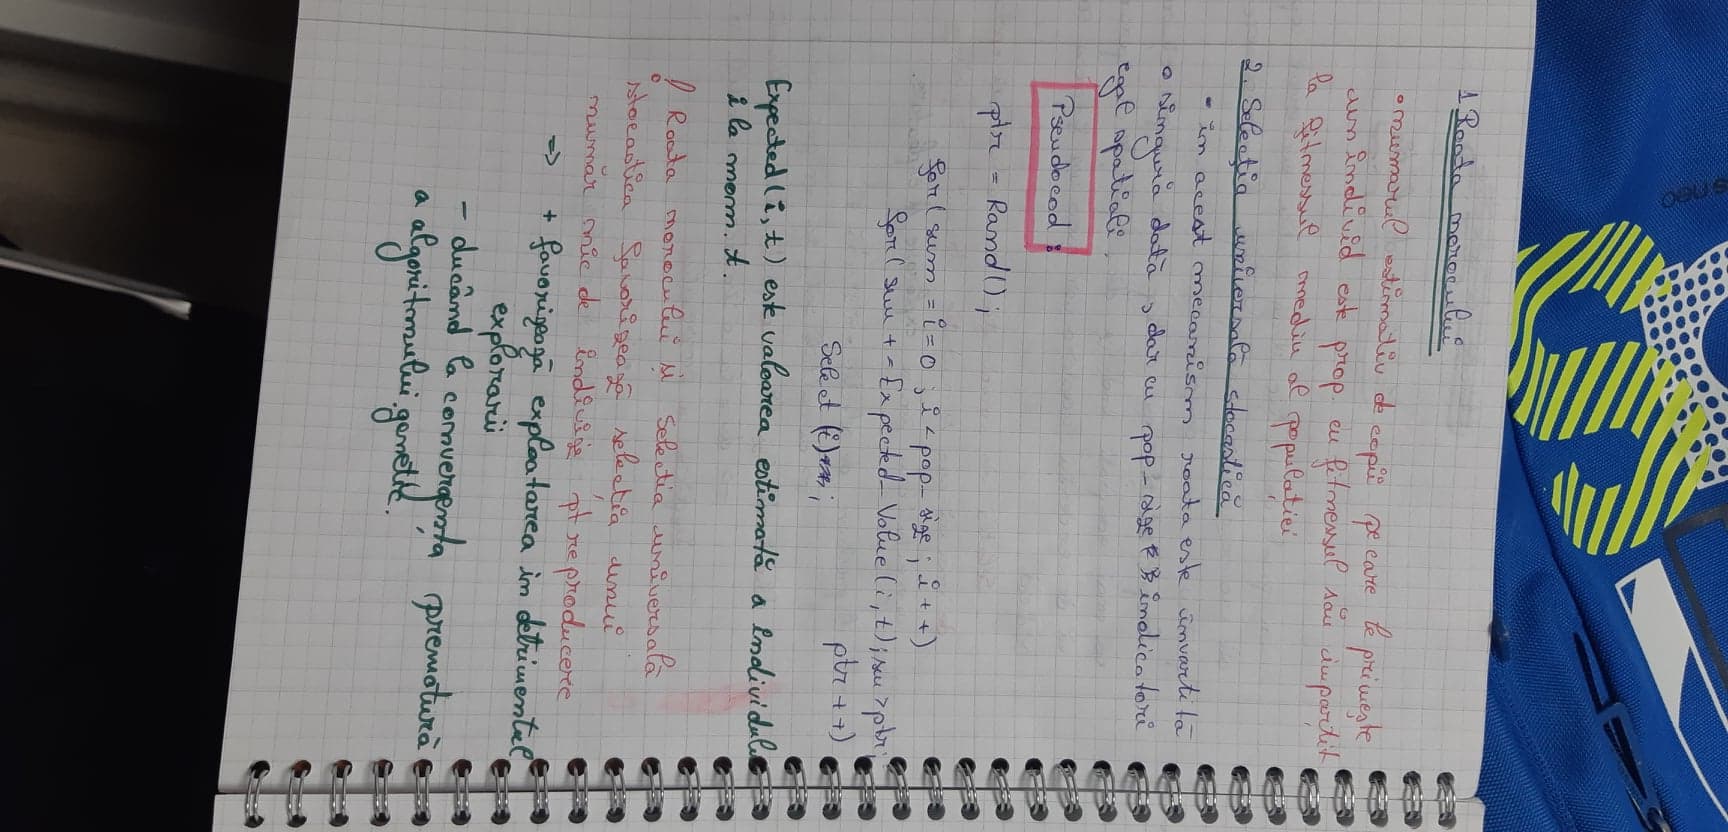 1 Roata norocului
• numarul estimativ de copii pe care le primește
un individ este prop. cu fitnessul său împarțit
la fitnessul mediu al populației
2. Selecția universală stocastică
- în acest mecanism roata este învartită
o singură dată, dar cu pop-size indicatori
egal spatiali.
Pseudocod :
ptr = Rand();
for( sum = i = 0 ; i < pop-size ; i + +)
for( sum + = Expected-Value(i, t); sum > ptr;
ptr + +)
Select (i) ;
Expected(i, t) este valoarea estimată a individului
i la mom. t.
! Roata norocului și Selectia universală
stocastica favorizează selecția unui
număr mic de indivize pt reproducere
=> + favorizează exploatarea in detrimentul
explorarii
- ducând la convergența prematură
a algoritmului genetic.